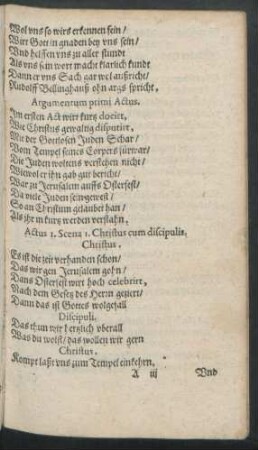 Wol vns so wirs erkennen fein/
Wirt Gott in gnaden bey vns sein/
Vnd helffen vns zu aller stundt
Als vns sein wort macht klarlich kundt
Dann er vns Sach gar wel außricht/
Rudolff Bellinghauß ohn args spricht.
Argumentum primi Actus.
Im ersten Act wirt kurtz dociert,
Wie Christus gewaltig disputirt,
Mit der Gottlosen Juden Schar/
Vom Tempel seines Corpers fürwar/
Die Juden woltens verstehen nicht/
Wiewol er ihn gab gut bericht/
War zu Jerusalem auffs Osterfest/
Da viele Juden sein gewest/
So an Christum gelaubet han/
Als ihr in kurtz werden verstahn.
Actus 1. Scena 1. Christus cum discipulis.
Christus.
Es ist die zeit verhanden schon/
Das wir gen Jerusalem gohn/
Dans Osterfest wirt hoch celebrirt,
Nach dem Gesetz des Herrn geziert/
Dann das ist Gottes wolgefall
Discipuli.
Das thun wir hertzlich vberall
Was du wolst/ das wollen wir gern
Christus.
Kompt laßt vns zum Tempel einkehrn.
A iij Vnd